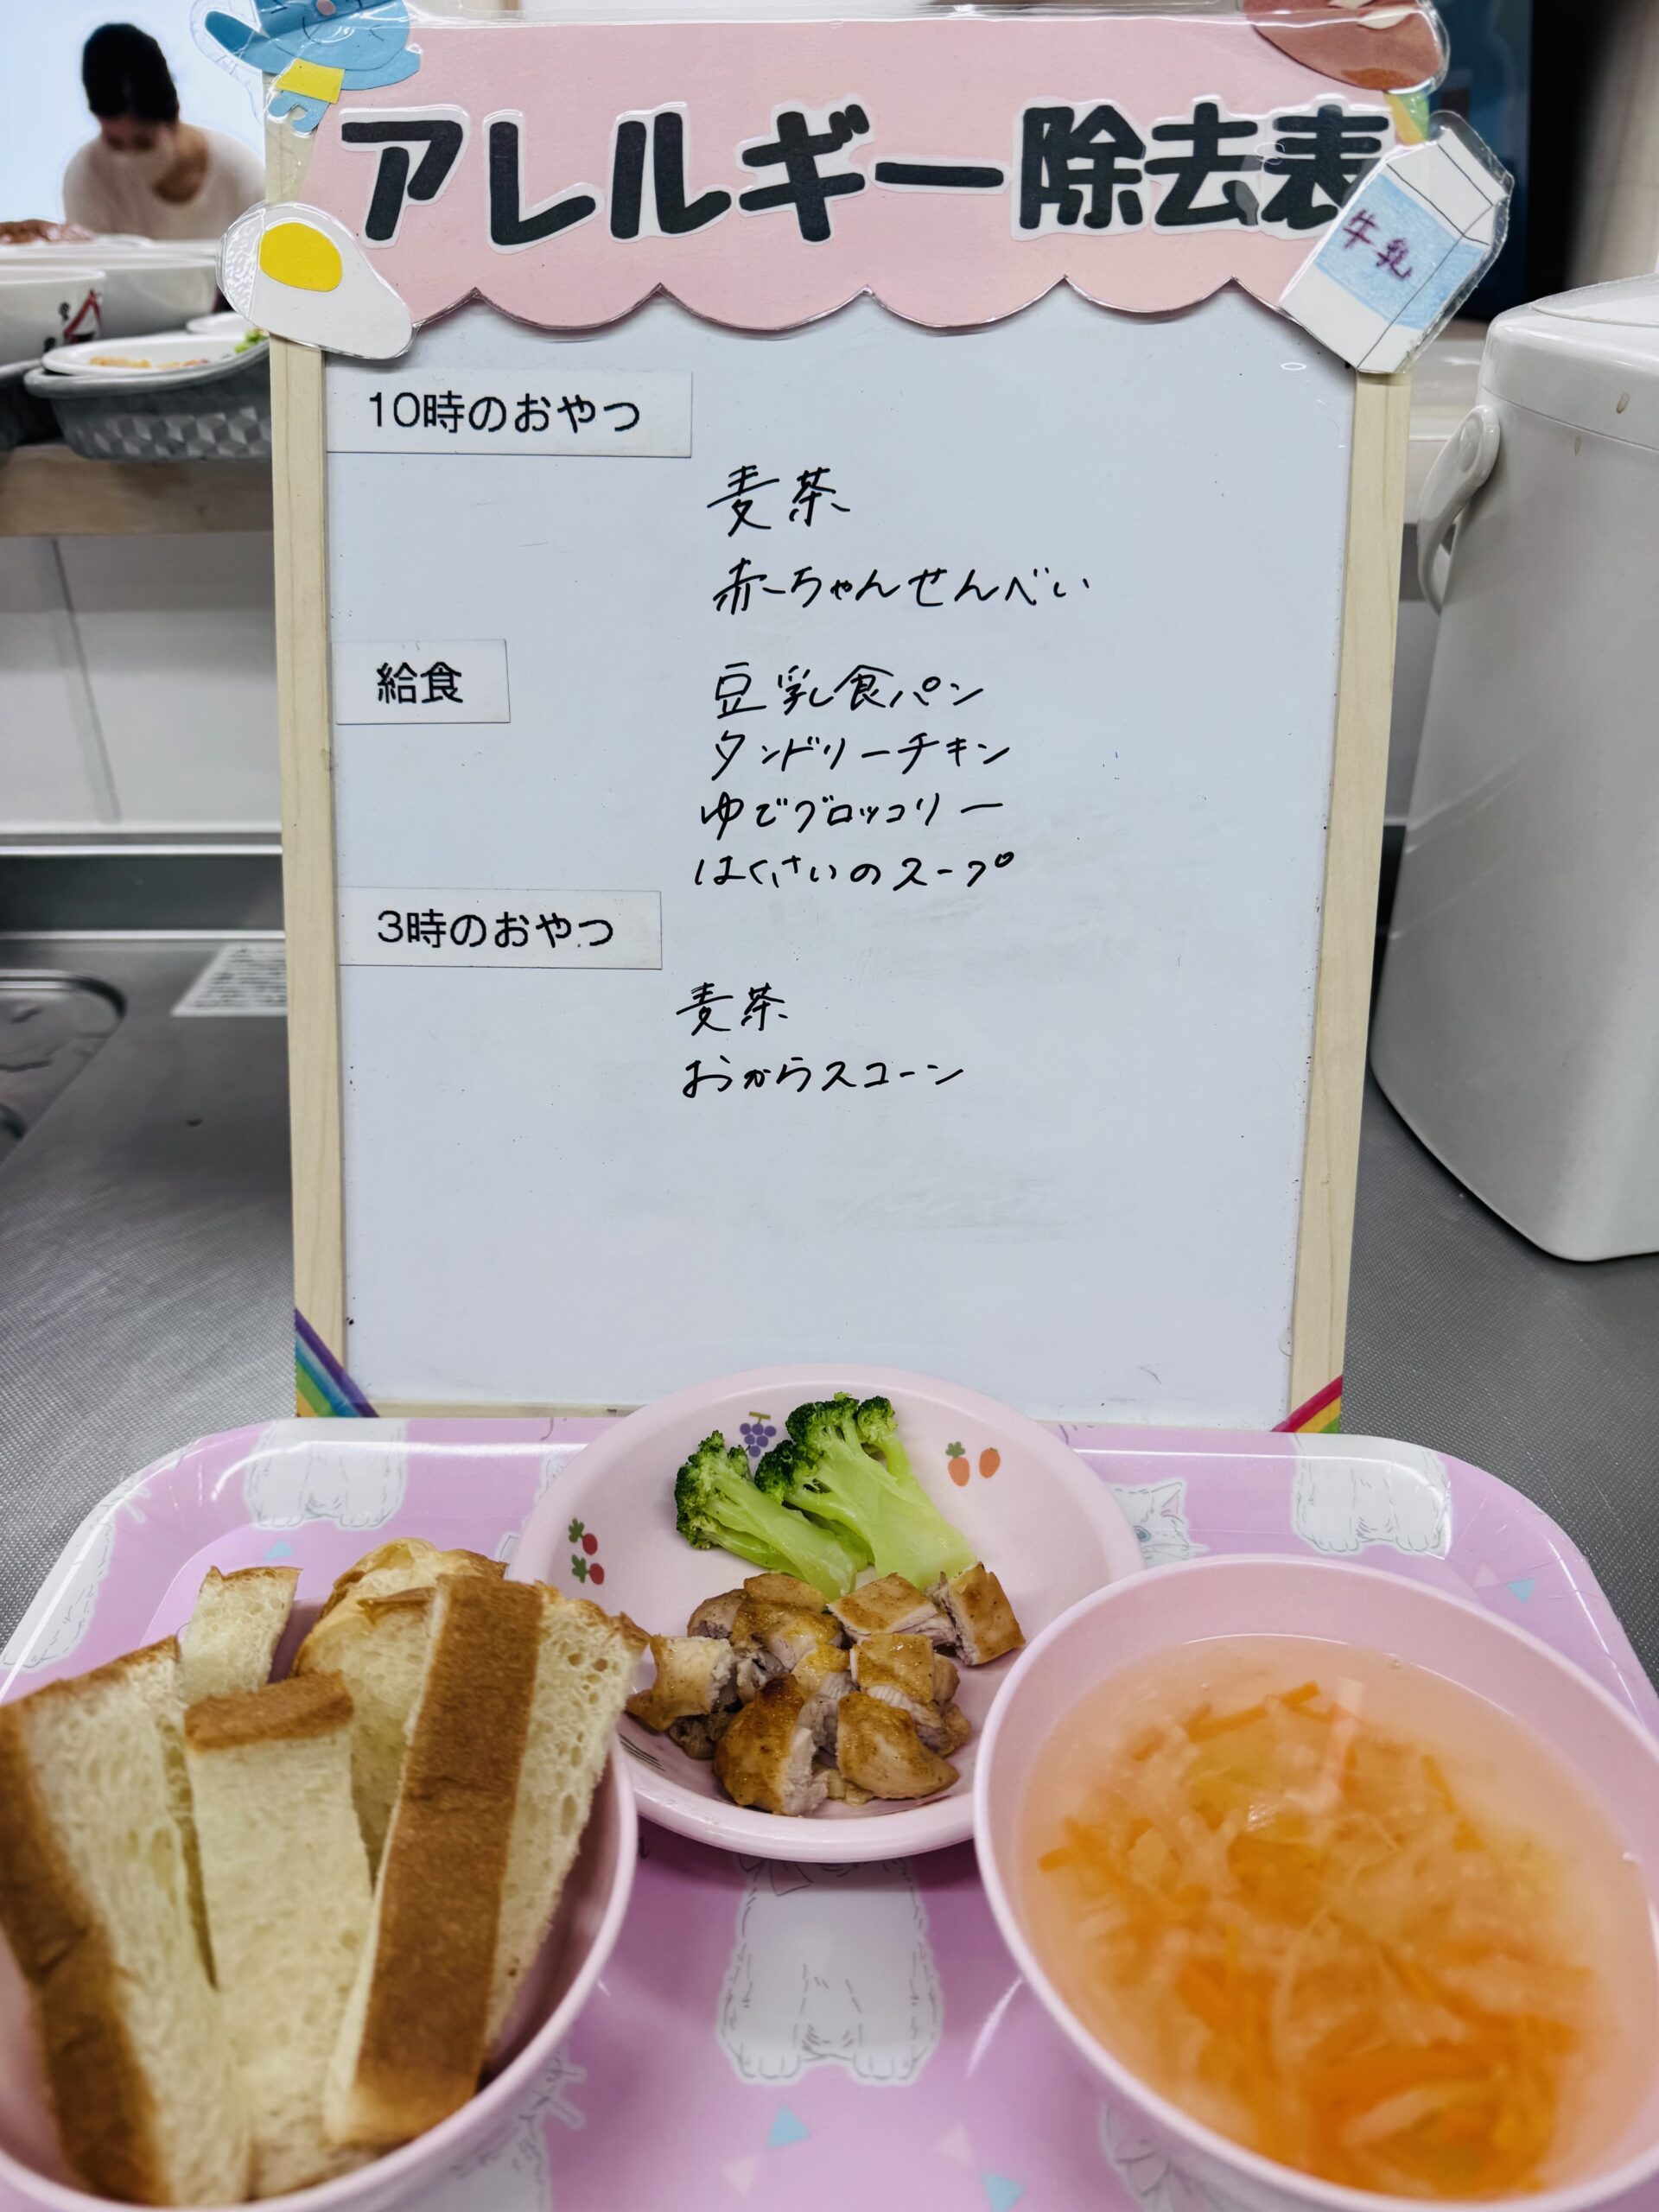 アレルギー除去表
牛乳
10時のおやつ
麦茶
赤ーちゃんせんべい
給食
豆乳食パン
タンドリーチキン
ゆでブロッコリー
はくさいのスープ
3時のおやつ
麦茶
おからスコーン